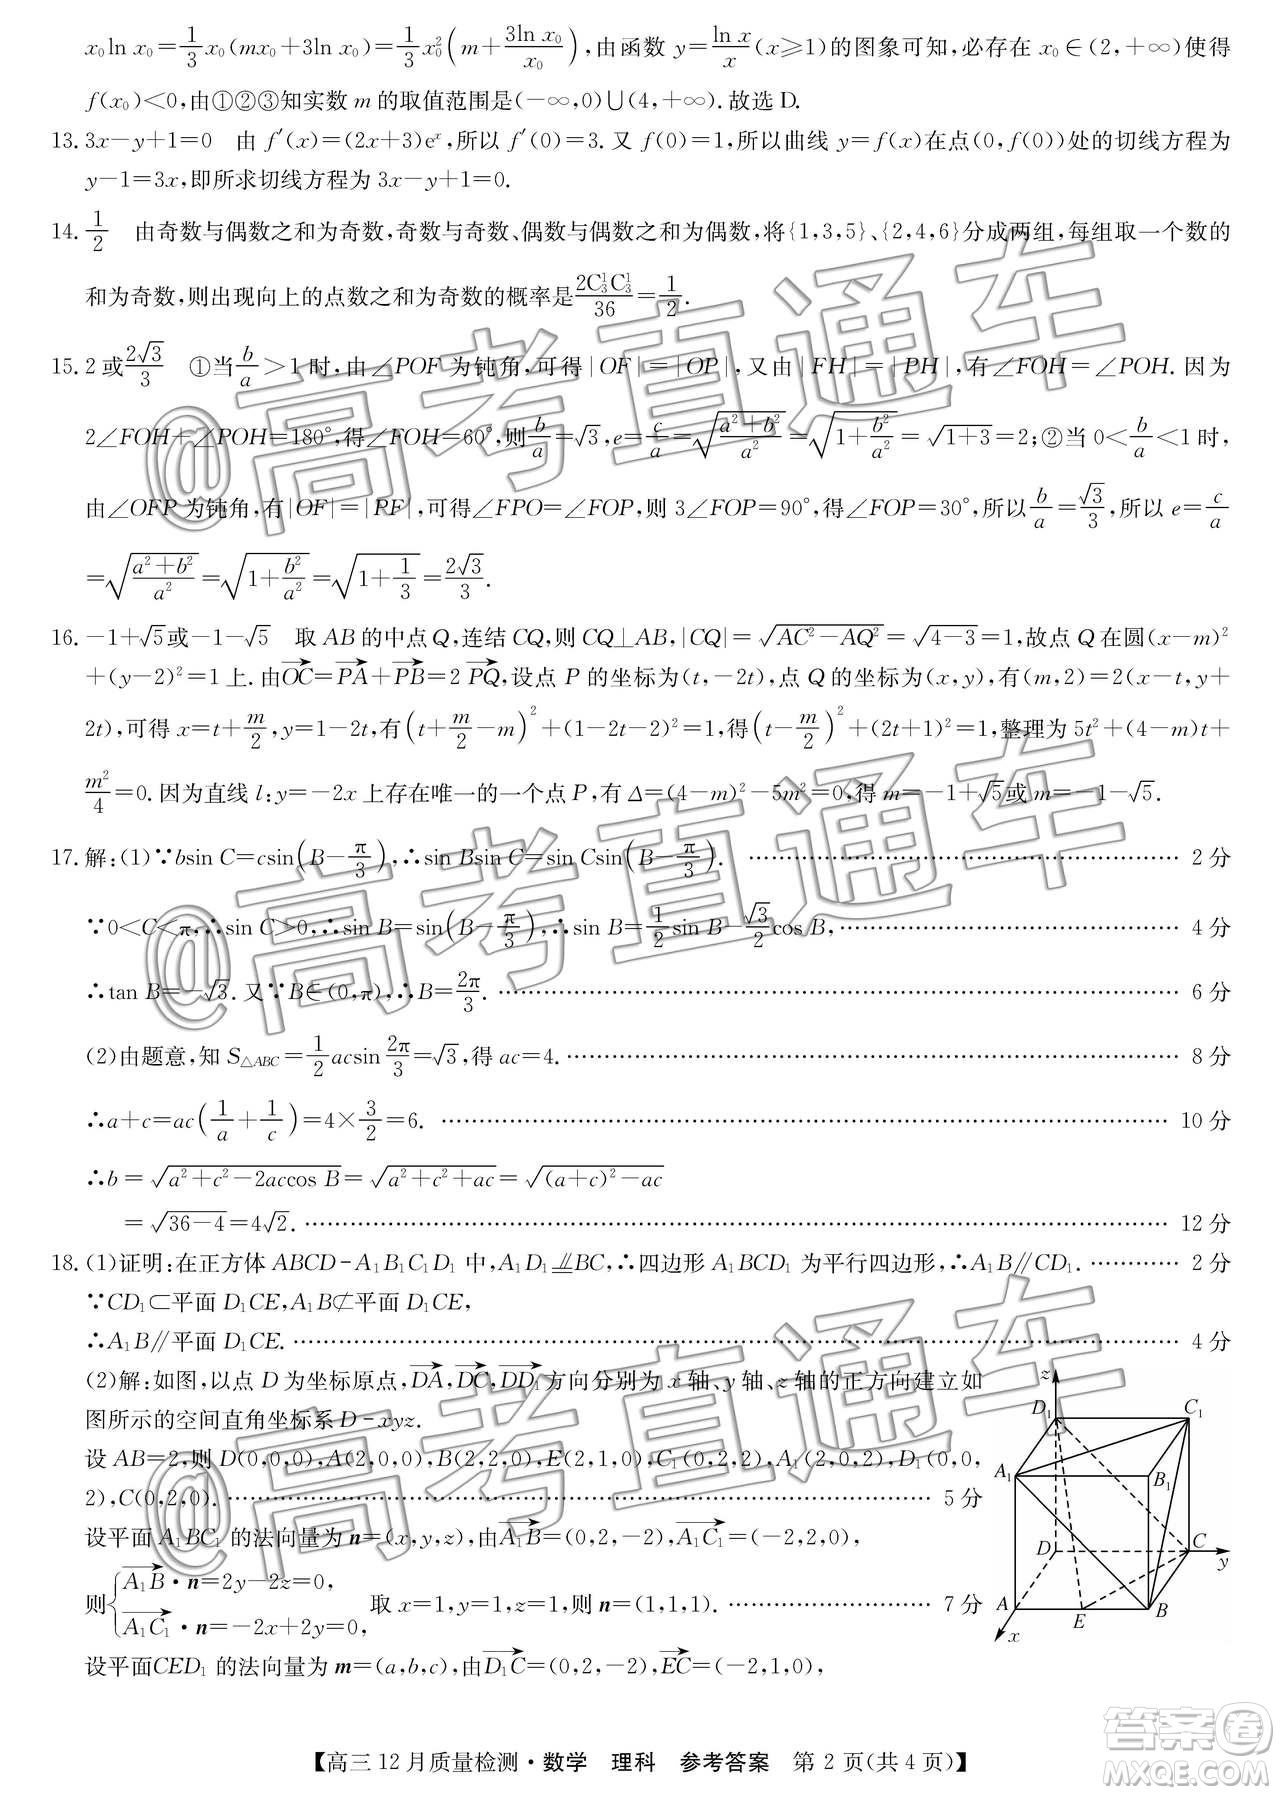 x₀ln x₀=1/3x₀(mx₀+3ln x₀)=1/3x₀²(m+3ln x₀/x₀),由函数 y=ln x/x(x≥1)的图象可知,必存在 x₀∈(2,+∞)使得
f(x₀)<0,由①②③知实数 m 的取值范围是(-∞,0)∪(4,+∞).故选 D.
13.3x-y+1=0 由 f′(x)=(2x+3)eˣ,所以 f′(0)=3.又 f(0)=1,所以曲线 y=f(x)在点(0,f(0))处的切线方程为
y-1=3x,即所求切线方程为 3x-y+1=0.
14.1/2 由奇数与偶数之和为奇数,奇数与奇数、偶数与偶数之和为偶数,将{1,3,5}、{2,4,6}分成两组,每组取一个数的
和为奇数,则出现向上的点数之和为奇数的概率是2C₃¹C₃¹/36=1/2.
15.2或2√3/3 ①当b/a>1时,由∠POF为钝角,可得|OF|=|OP|,又由|FH|=|PH|,有∠FOH=∠POH.因为
2∠FOH+∠POH=180°,得∠FOH=60°,则b/a=√3,e=c/a=√((a²+b²)/a²)=√(1+b²/a²)=√(1+3)=2;②当0<b/a<1时,
由∠OFP为钝角,有|OF|=|PF|,可得∠FPO=∠FOP,则3∠FOP=90°,得∠FOP=30°,所以b/a=√3/3,所以e=c/a
=√((a²+b²)/a²)=√(1+b²/a²)=√(1+1/3)=2√3/3.
16.-1+√5或-1-√5 取AB的中点Q,连结CQ,则CQ⊥AB,|CQ|=√(AC²-AQ²)=√(4-3)=1,故点Q在圆(x-m)²
+(y-2)²=1上.由OC→=PA→+PB→=2PQ→,设点P的坐标为(t,-2t),点Q的坐标为(x,y),有(m,2)=2(x-t,y+
2t),可得x=t+m/2,y=1-2t,有(t+m/2-m)²+(1-2t-2)²=1,得(t-m/2)²+(2t+1)²=1,整理为5t²+(4-m)t+
m²/4=0.因为直线l:y=-2x上存在唯一的一个点P,有Δ=(4-m)²-5m²=0,得m=-1+√5或m=-1-√5.
17.解:(1)∵bsin C=csin(B-π/3),∴sin Bsin C=sin Csin(B-π/3). …… 2分
∵0<C<π,∴sin C>0,∴sin B=sin(B-π/3),∴sin B=1/2sin B-√3/2cos B,…… 4分
∴tan B=-√3.又∵B∈(0,π),∴B=2π/3. …… 6分
(2)由题意,知S△ABC=1/2acsin2π/3=√3,得ac=4. …… 8分
∴a+c=ac(1/a+1/c)=4×3/2=6. …… 10分
∴b=√(a²+c²-2accos B)=√(a²+c²+ac)=√((a+c)²-ac)
=√(36-4)=4√2. …… 12分
18.(1)证明:在正方体ABCD-A₁B₁C₁D₁中,A₁D₁⫽BC,∴四边形A₁BCD₁为平行四边形,∴A₁B∥CD₁. …… 2分
∵CD₁⊂平面D₁CE,A₁B⊄平面D₁CE,
∴A₁B∥平面D₁CE. …… 4分
(2)解:如图,以点D为坐标原点,DA→,DC→,DD₁→方向分别为x轴、y轴、z轴的正方向建立如
图所示的空间直角坐标系D-xyz.
设AB=2,则D(0,0,0),A(2,0,0),B(2,2,0),E(2,1,0),C₁(0,2,2),A₁(2,0,2),D₁(0,0,
2),C(0,2,0). …… 5分
设平面A₁BC₁的法向量为n=(x,y,z),由A₁B→=(0,2,-2),A₁C₁→=(-2,2,0),
则{A₁B→·n=2y-2z=0, A₁C₁→·n=-2x+2y=0, 取x=1,y=1,z=1,则n=(1,1,1). …… 7分
设平面CED₁的法向量为m=(a,b,c),由D₁C→=(0,2,-2),EC→=(-2,1,0),
z
D₁
C₁
A₁
B₁
D
C
y
A
E
B
x
【高三12月质量检测·数学 理科 参考答案 第2页(共4页)】
@高考直通车
@高考直通车
@高考直通车
答案卷
MXQE.COM